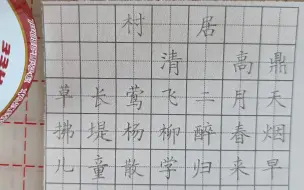 村居
清 高鼎
草长莺飞二月天
拂堤杨柳醉春烟
儿童散学归来早